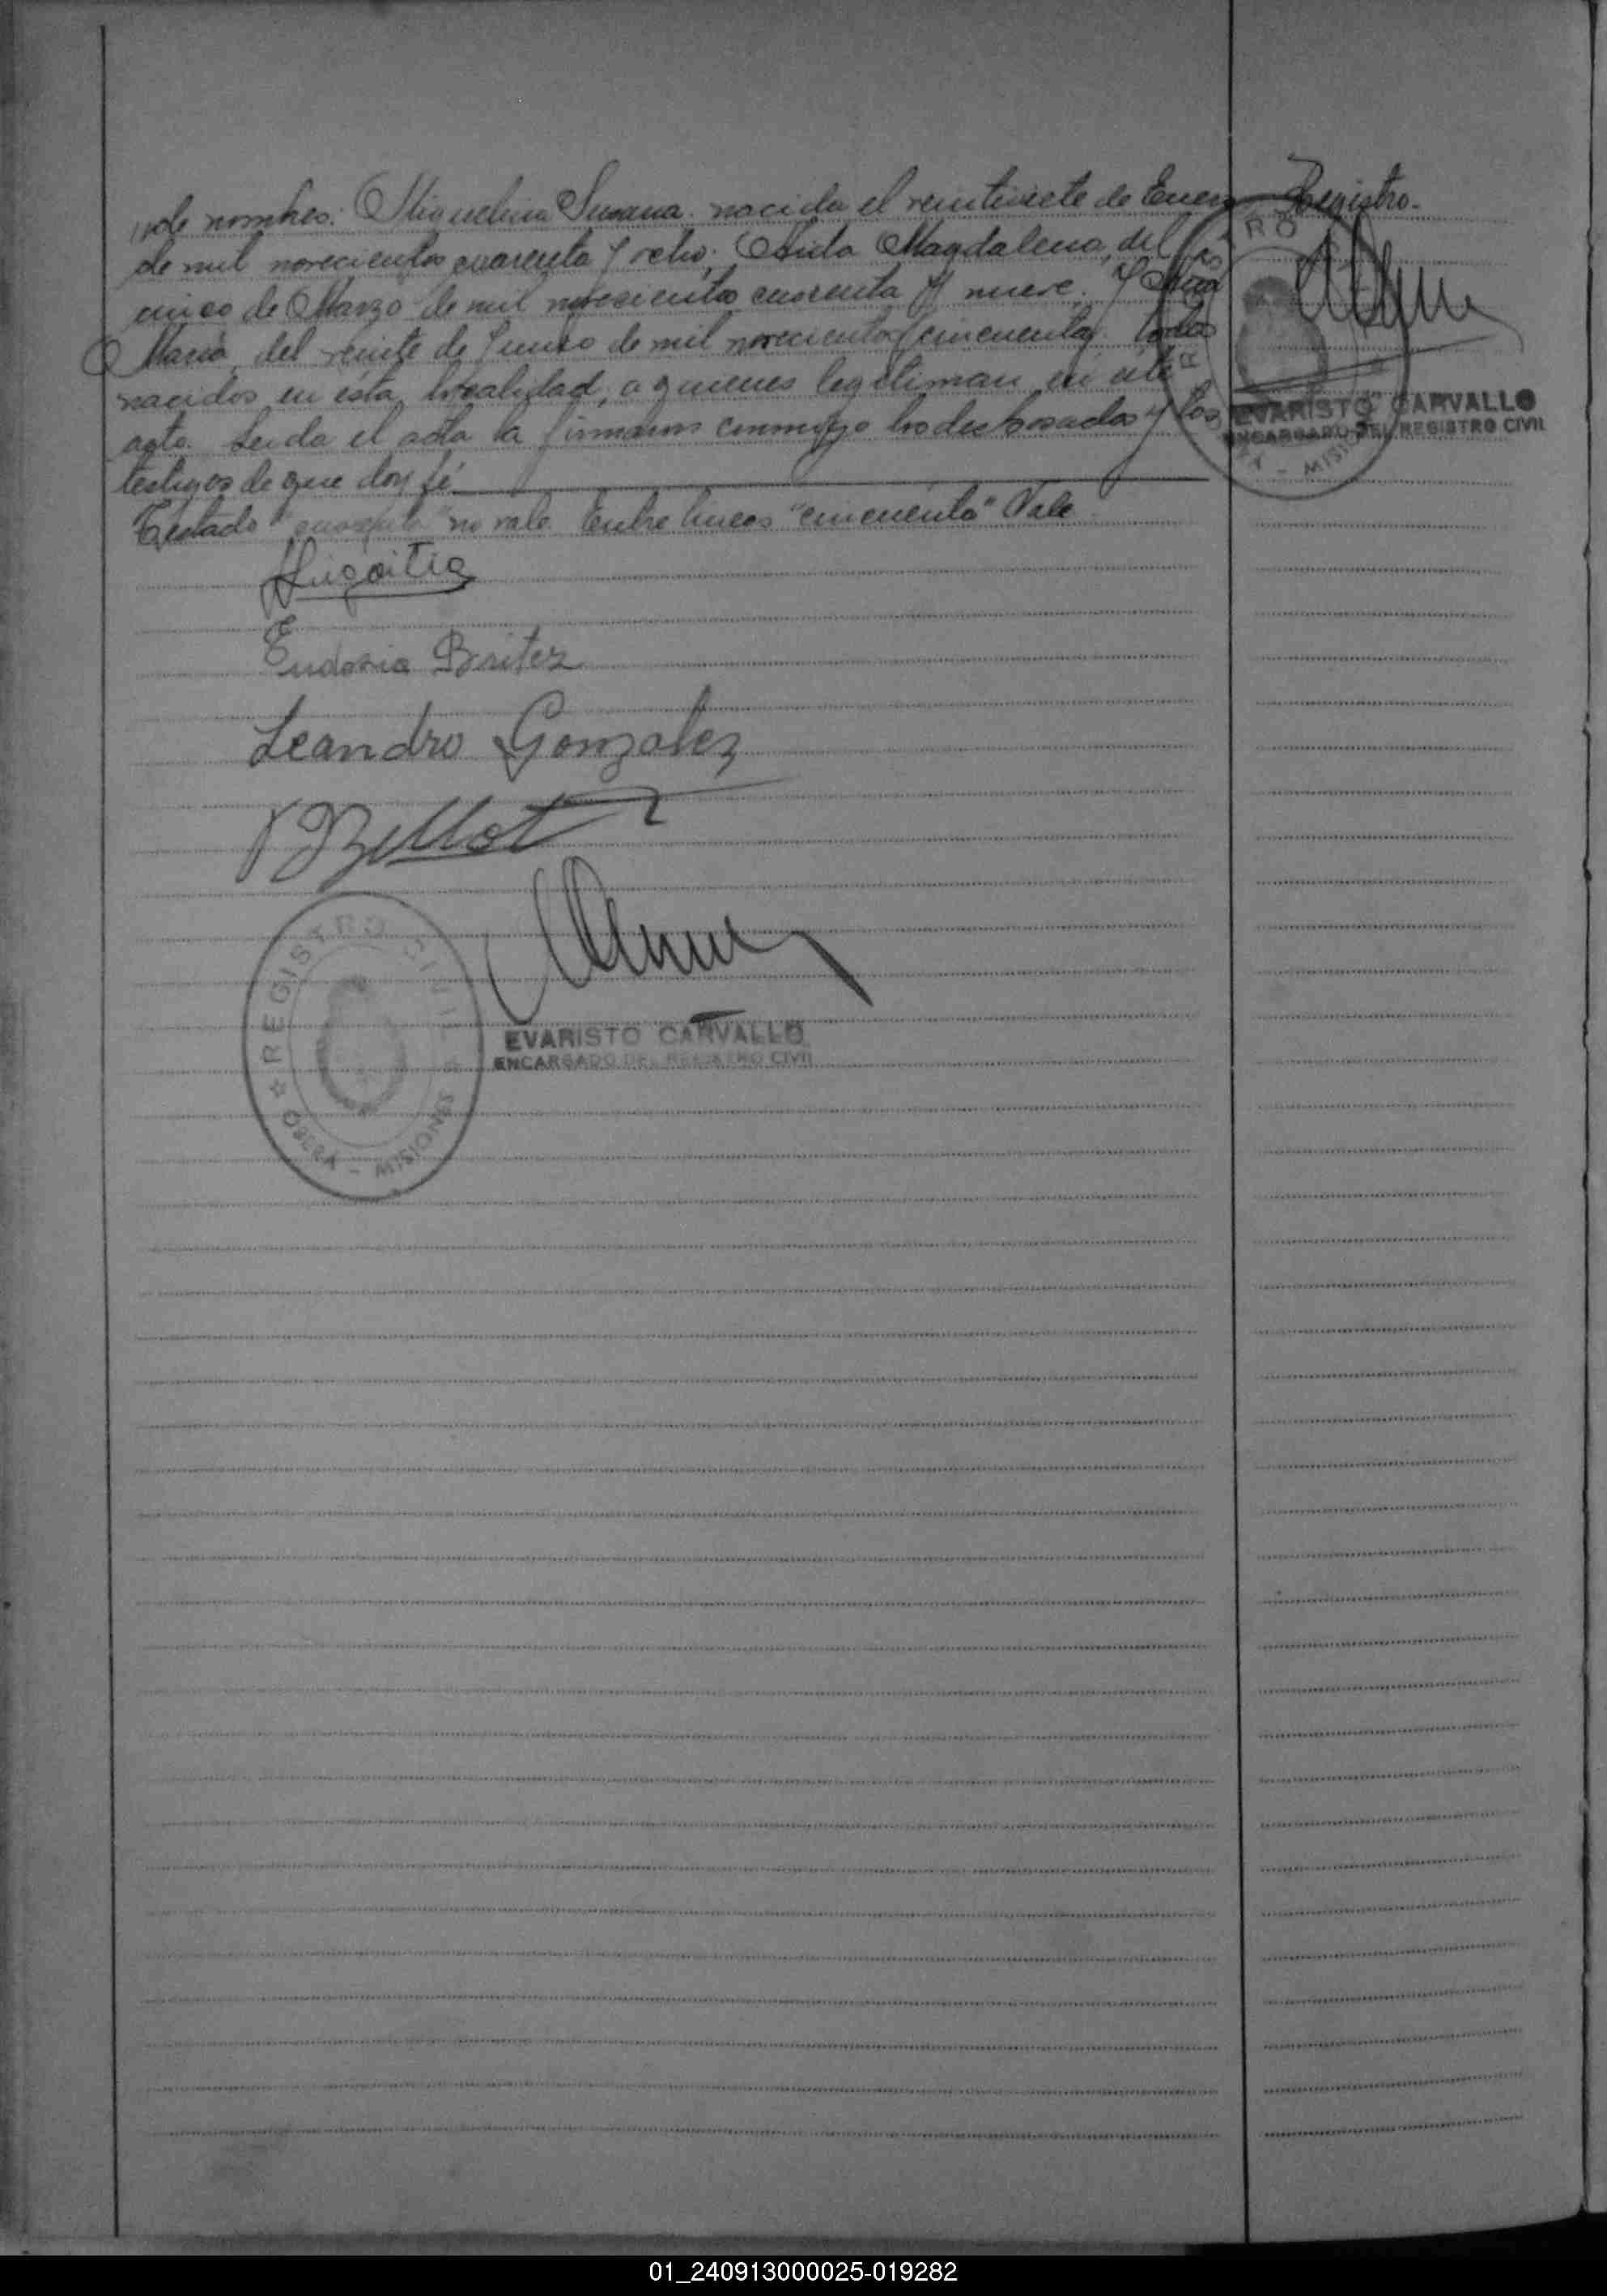 de nombres: Miquelina Susana nacida el veintisiete de Enero
de mil novecientos cuarenta y ocho; Aida Magdalena, del
cinco de Marzo de mil novecientos cuarenta y nueve. Y Ana
Maria, del veinte de Junio de mil novecientos cincuenta, todos
nacidos en esta localidad, a quienes legitiman en este
acto. Leida el acta la firmaron conmigo los desposados y los
testigos de que doy fé
Testado "cuarenta" no vale. Entre lineas "cincuenta" Vale
Eudosia Britez
Leandro Gonzalez
REGISTRO CIVIL
OBERA - MISIONES
EVARISTO CARVALLO
ENCARGADO DEL REGISTRO CIVIL
Registro.
EVARISTO CARVALLO
ENCARGADO DEL REGISTRO CIVIL
MISIO
01_240913000025-019282